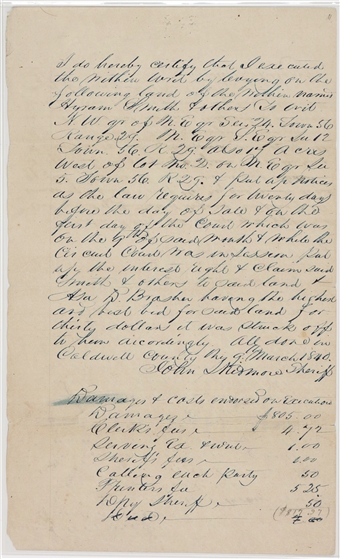 I do hereby certify that I executed
the within writ by levying on the
following land of the within named
Hyram Smith & others To wit
N W qr of N E qr Sec 24. Town 56
Range 29. N E qr S E qr Sec 12
Town. 56 R 29 above Acres
West of lot No 2. on N E qr Sec
5. Town 56. R 29. & put up Notices
as the law requires for twenty days
before the day of Sale & on the
first day of the Court which was
on the 9th of said Month & while the
Circuit Court was in Session put
up the interest right & claim said
Smith & others to said land &
Asa D Brasher having the highest
and best bid for said land for
thirty dollars it was struck off
to him accordingly all done in
Caldwell County this 9th March 1840.
John Skidmore Sheriff
Damages & costs endorsed on Execution
Damages $805.00
Clerk's fees 4.72
Serving Ex. & 1.00
Sheriff's fees 1.00
Calling each Party 50
Printers fee 5 25
Dpy Sheriff 50